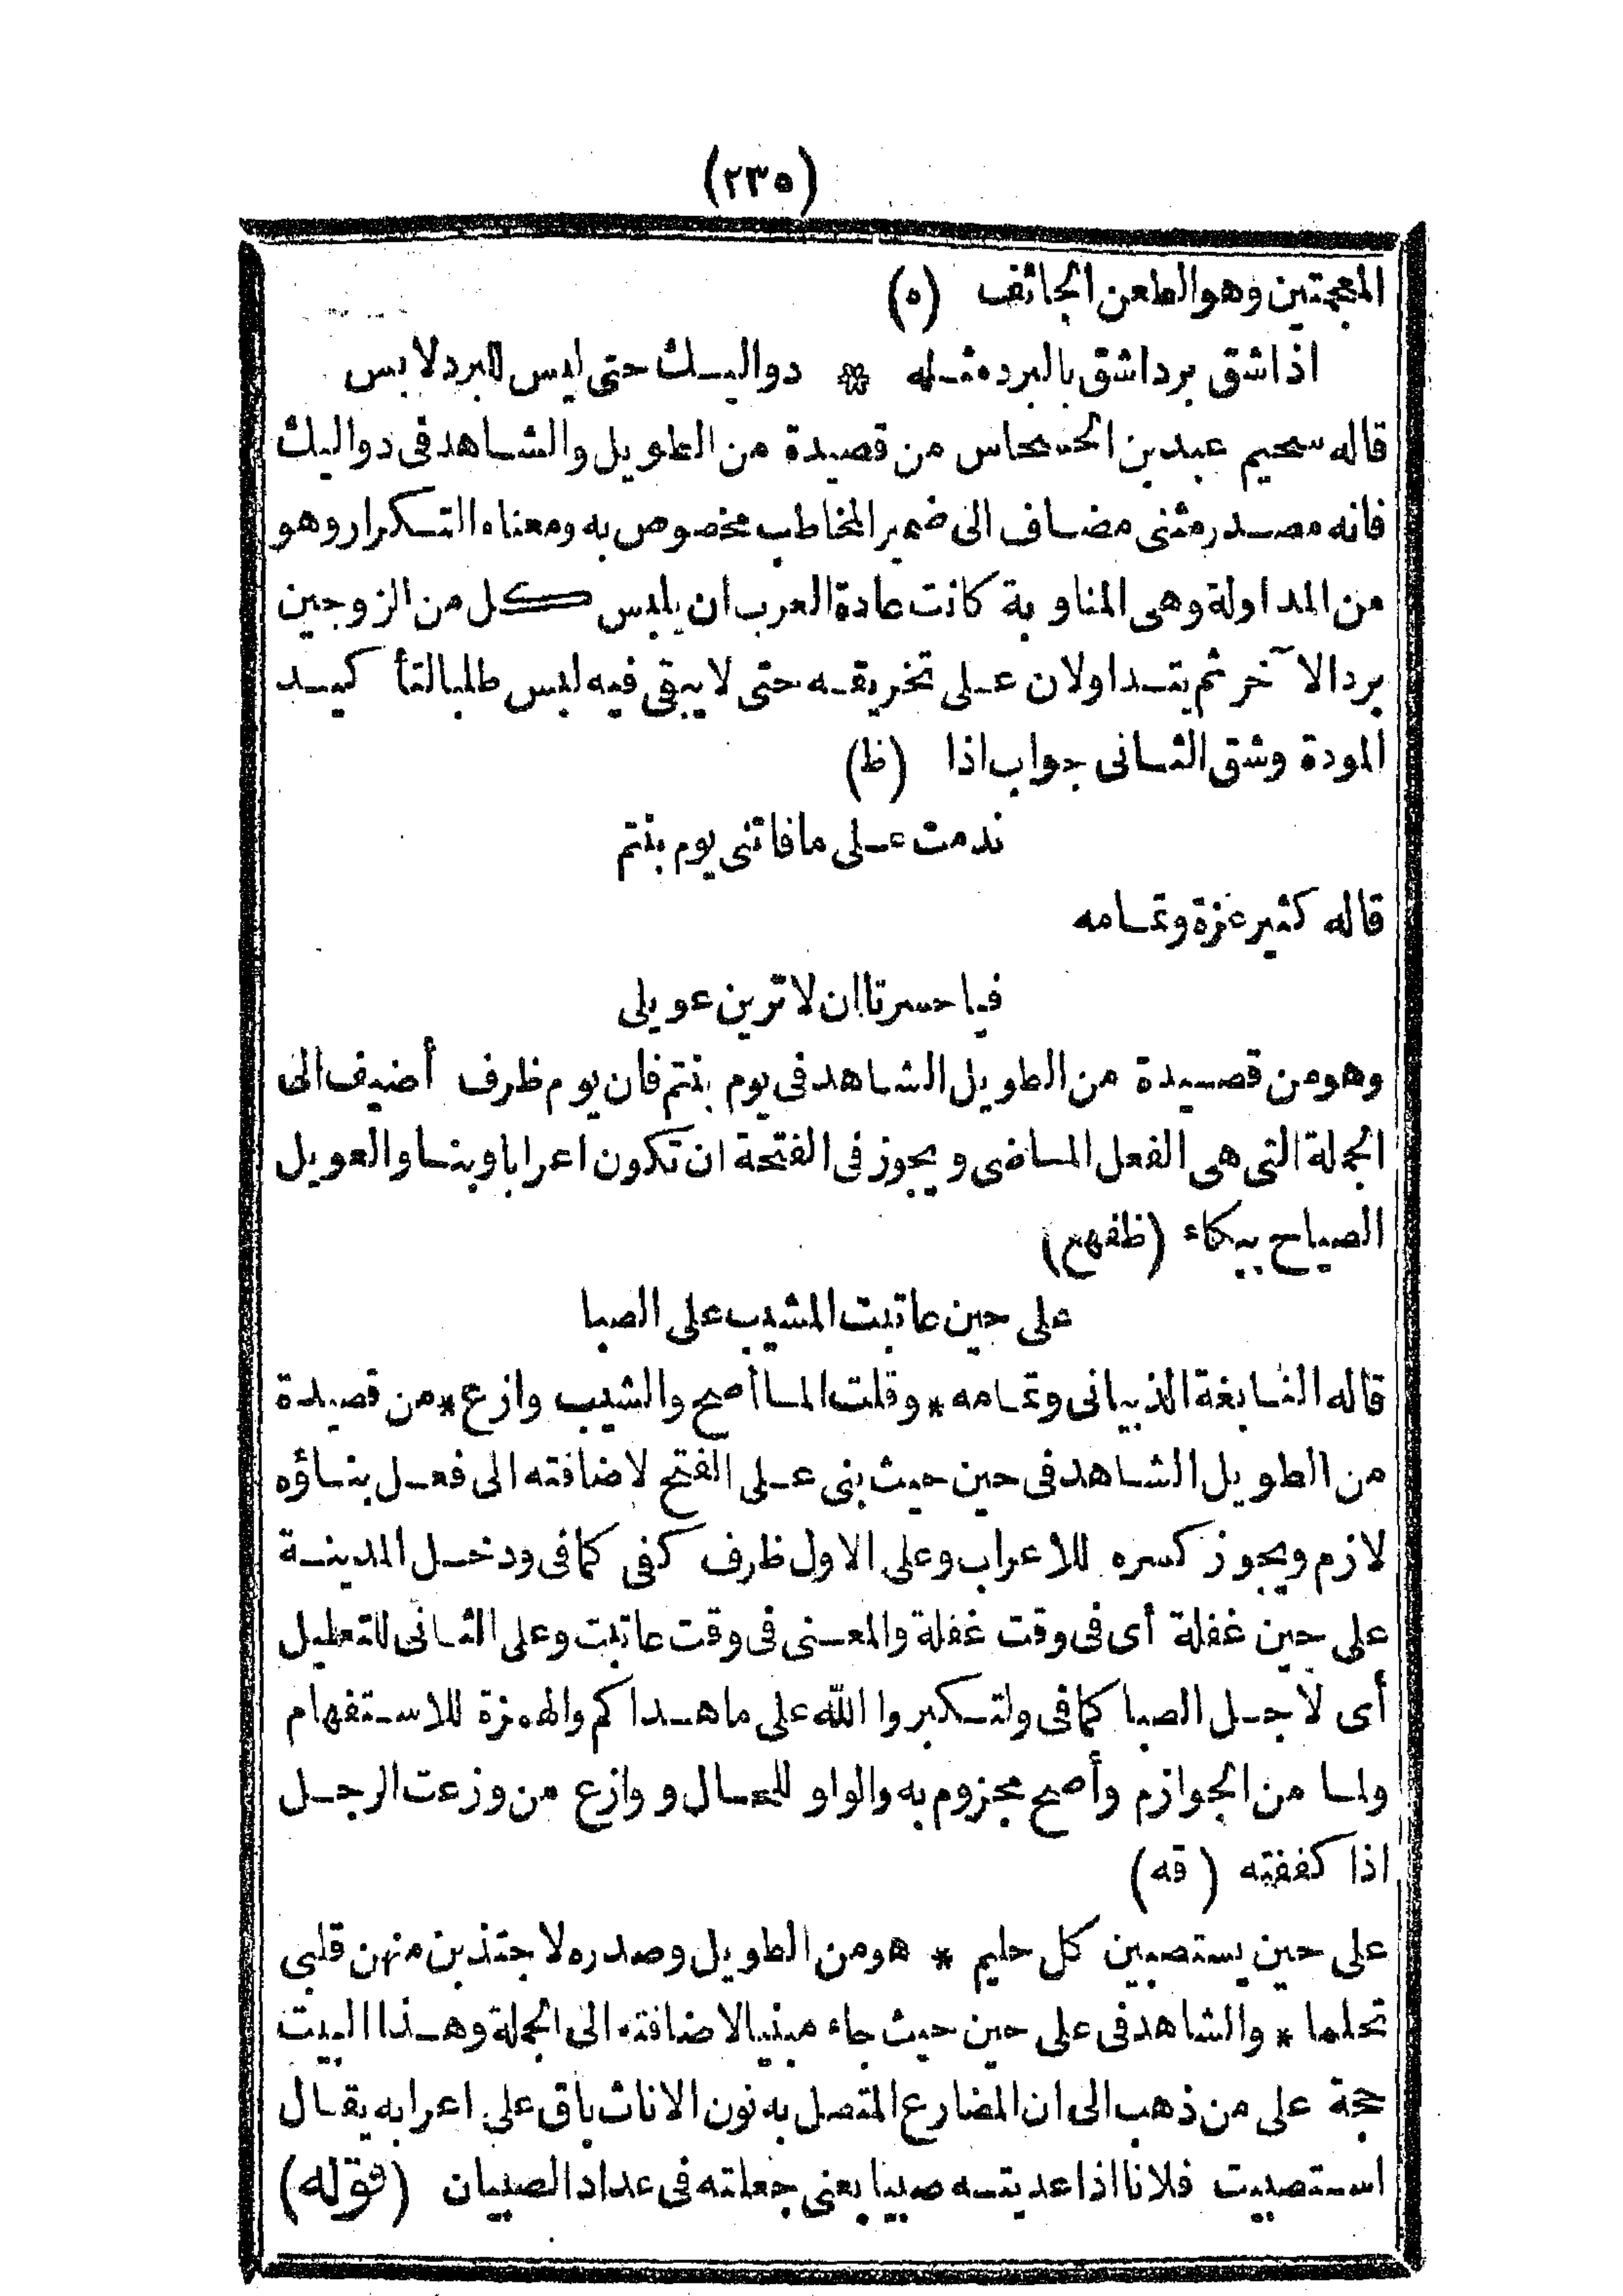 (٢٣٥)
المعجمتين وهو الطعن الجائف (ه)
اذا شق برد اشق بالبرد مثله * دواليك حتى ليس للبرد لابس
قاله سحيم عبد بن الحسحاس من قصيدة من الطويل والشاهد فى دواليك
فانه مصدر مثنى مضاف الى ضمير المخاطب مخصوص به ومعناه التكرار وهو
من المداولة وهى المناوبة كانت عادة العرب ان يلبس كل من الزوجين
برد الآخر ثم يتداولان على تخريقه حتى لا يبقى فيه لبس طلبا لتأكيد
المودة وشق الثانى جواب اذا (ظ)
ندمت على ما فاتنى يوم بنتم
قاله كثير عزة وتمامه
فيا حسرتا ان لا ترين عويلى
وهو من قصيدة من الطويل الشاهد فى يوم بنتم فان يوم ظرف أضيف الى
الجملة التى هى الفعل الماضى ويجوز فى الفتحة ان تكون اعرابا وبنا والعويل
الصياح ببكاء (ظفهع)
على حين عاتبت المشيب على الصبا
قاله النابغة الذبيانى وتمامه * وقلت الما أصح والشيب وازع * من قصيدة
من الطويل الشاهد فى حين حيث بنى على الفتح لاضافته الى فعل بناؤه
لازم ويجوز كسره للاعراب وعلى الاول ظرف كفى كما فى ودخل المدينة
على حين غفلة أى فى وقت غفلة والمعنى فى وقت عاتبت وعلى الثانى للتعليل
أى لاجل الصبا كما فى ولتكبروا الله على ما هداكم والهمزة للاستفهام
ولما من الجوازم وأصح مجزوم به والواو للحال ووازع من وزعت الرجل
اذا كففته (قه)
على حين يستصبين كل حليم * هو من الطويل وصدره لاجتذبن منهن قلبى
تحلما * والشاهد فى على حين حيث جاء مبنيا لاضافته الى الجملة وهذا البيت
حجة على من ذهب الى ان المضارع المتصل به نون الاناث باق على اعرابه يقال
استصبيت فلانا اذا عديته صبيا يعنى جعلته فى عداد الصبيان (قوله)